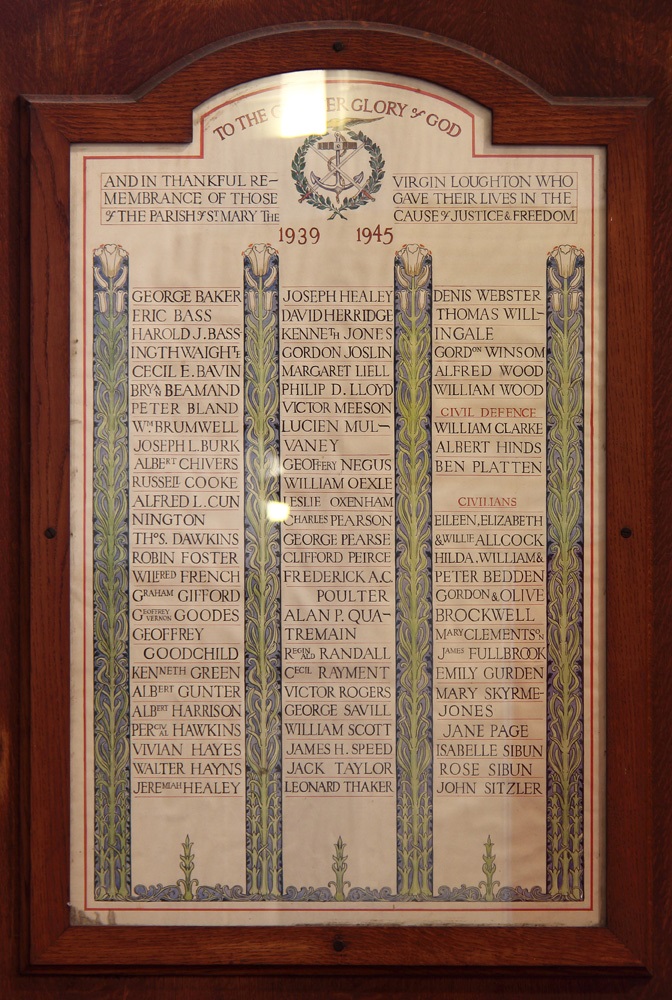 TO THE GREATER GLORY of GOD
AND IN THANKFUL RE-
MEMBRANCE OF THOSE
of THE PARISH of ST. MARY THE
VIRGIN LOUGHTON WHO
GAVE THEIR LIVES IN THE
CAUSE of JUSTICE & FREEDOM
1939 1945
GEORGE BAKER
ERIC BASS
HAROLD J. BASS-
INGTHWAIGHTE
CECIL E. BAVIN
BRYAN BEAMAND
PETER BLAND
WM BRUMWELL
JOSEPH L. BURK
ALBERT CHIVERS
RUSSELL COOKE
ALFRED L. CUN
NINGTON
THOS. DAWKINS
ROBIN FOSTER
WILFRED FRENCH
GRAHAM GIFFORD
GEOFFREY VERNON GOODES
GEOFFREY
GOODCHILD
KENNETH GREEN
ALBERT GUNTER
ALBERT HARRISON
PERCIVAL HAWKINS
VIVIAN HAYES
WALTER HAYNS
JEREMIAH HEALEY
JOSEPH HEALEY
DAVID HERRIDGE
KENNETH JONES
GORDON JOSLIN
MARGARET LIELL
PHILIP D. LLOYD
VICTOR MEESON
LUCIEN MUL-
VANEY
GEOFFERY NEGUS
WILLIAM OEXLE
LESLIE OXENHAM
CHARLES PEARSON
GEORGE PEARSE
CLIFFORD PEIRCE
FREDERICK A.C.
POULTER
ALAN P. QUA-
TREMAIN
REGINALD RANDALL
CECIL RAYMENT
VICTOR ROGERS
GEORGE SAVILL
WILLIAM SCOTT
JAMES H. SPEED
JACK TAYLOR
LEONARD THAKER
DENIS WEBSTER
THOMAS WILL-
INGALE
GORDON WINSOM
ALFRED WOOD
WILLIAM WOOD
CIVIL DEFENCE
WILLIAM CLARKE
ALBERT HINDS
BEN PLATTEN
CIVILIANS
EILEEN, ELIZABETH
& WILLIE ALLCOCK
HILDA, WILLIAM &
PETER BEDDEN
GORDON & OLIVE
BROCKWELL
MARY CLEMENTSON
JAMES FULLBROOK
EMILY GURDEN
MARY SKYRME-
JONES
JANE PAGE
ISABELLE SIBUN
ROSE SIBUN
JOHN SITZLER